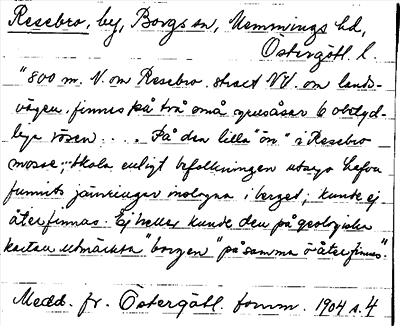 Resebro, by, Borgs sn, Memmings hd,
Östergötl. l.
"800 m. V. om Resebro, strax NV. om lands-
vägen, finnas på två små grusåsar 6 obetyd-
liga rösen . . . På den lilla "ön" i Resebro
mosse, skola enligt befolkningens utsago hafva
funnits järnringar i berget; kunde ej
återfinnas. Ej heller kunde den på geologiska
kartan utmärkta "borgen" på samma ö återfinnas".
Medd. fr. Östergötl. fornm. 1904 s. 4